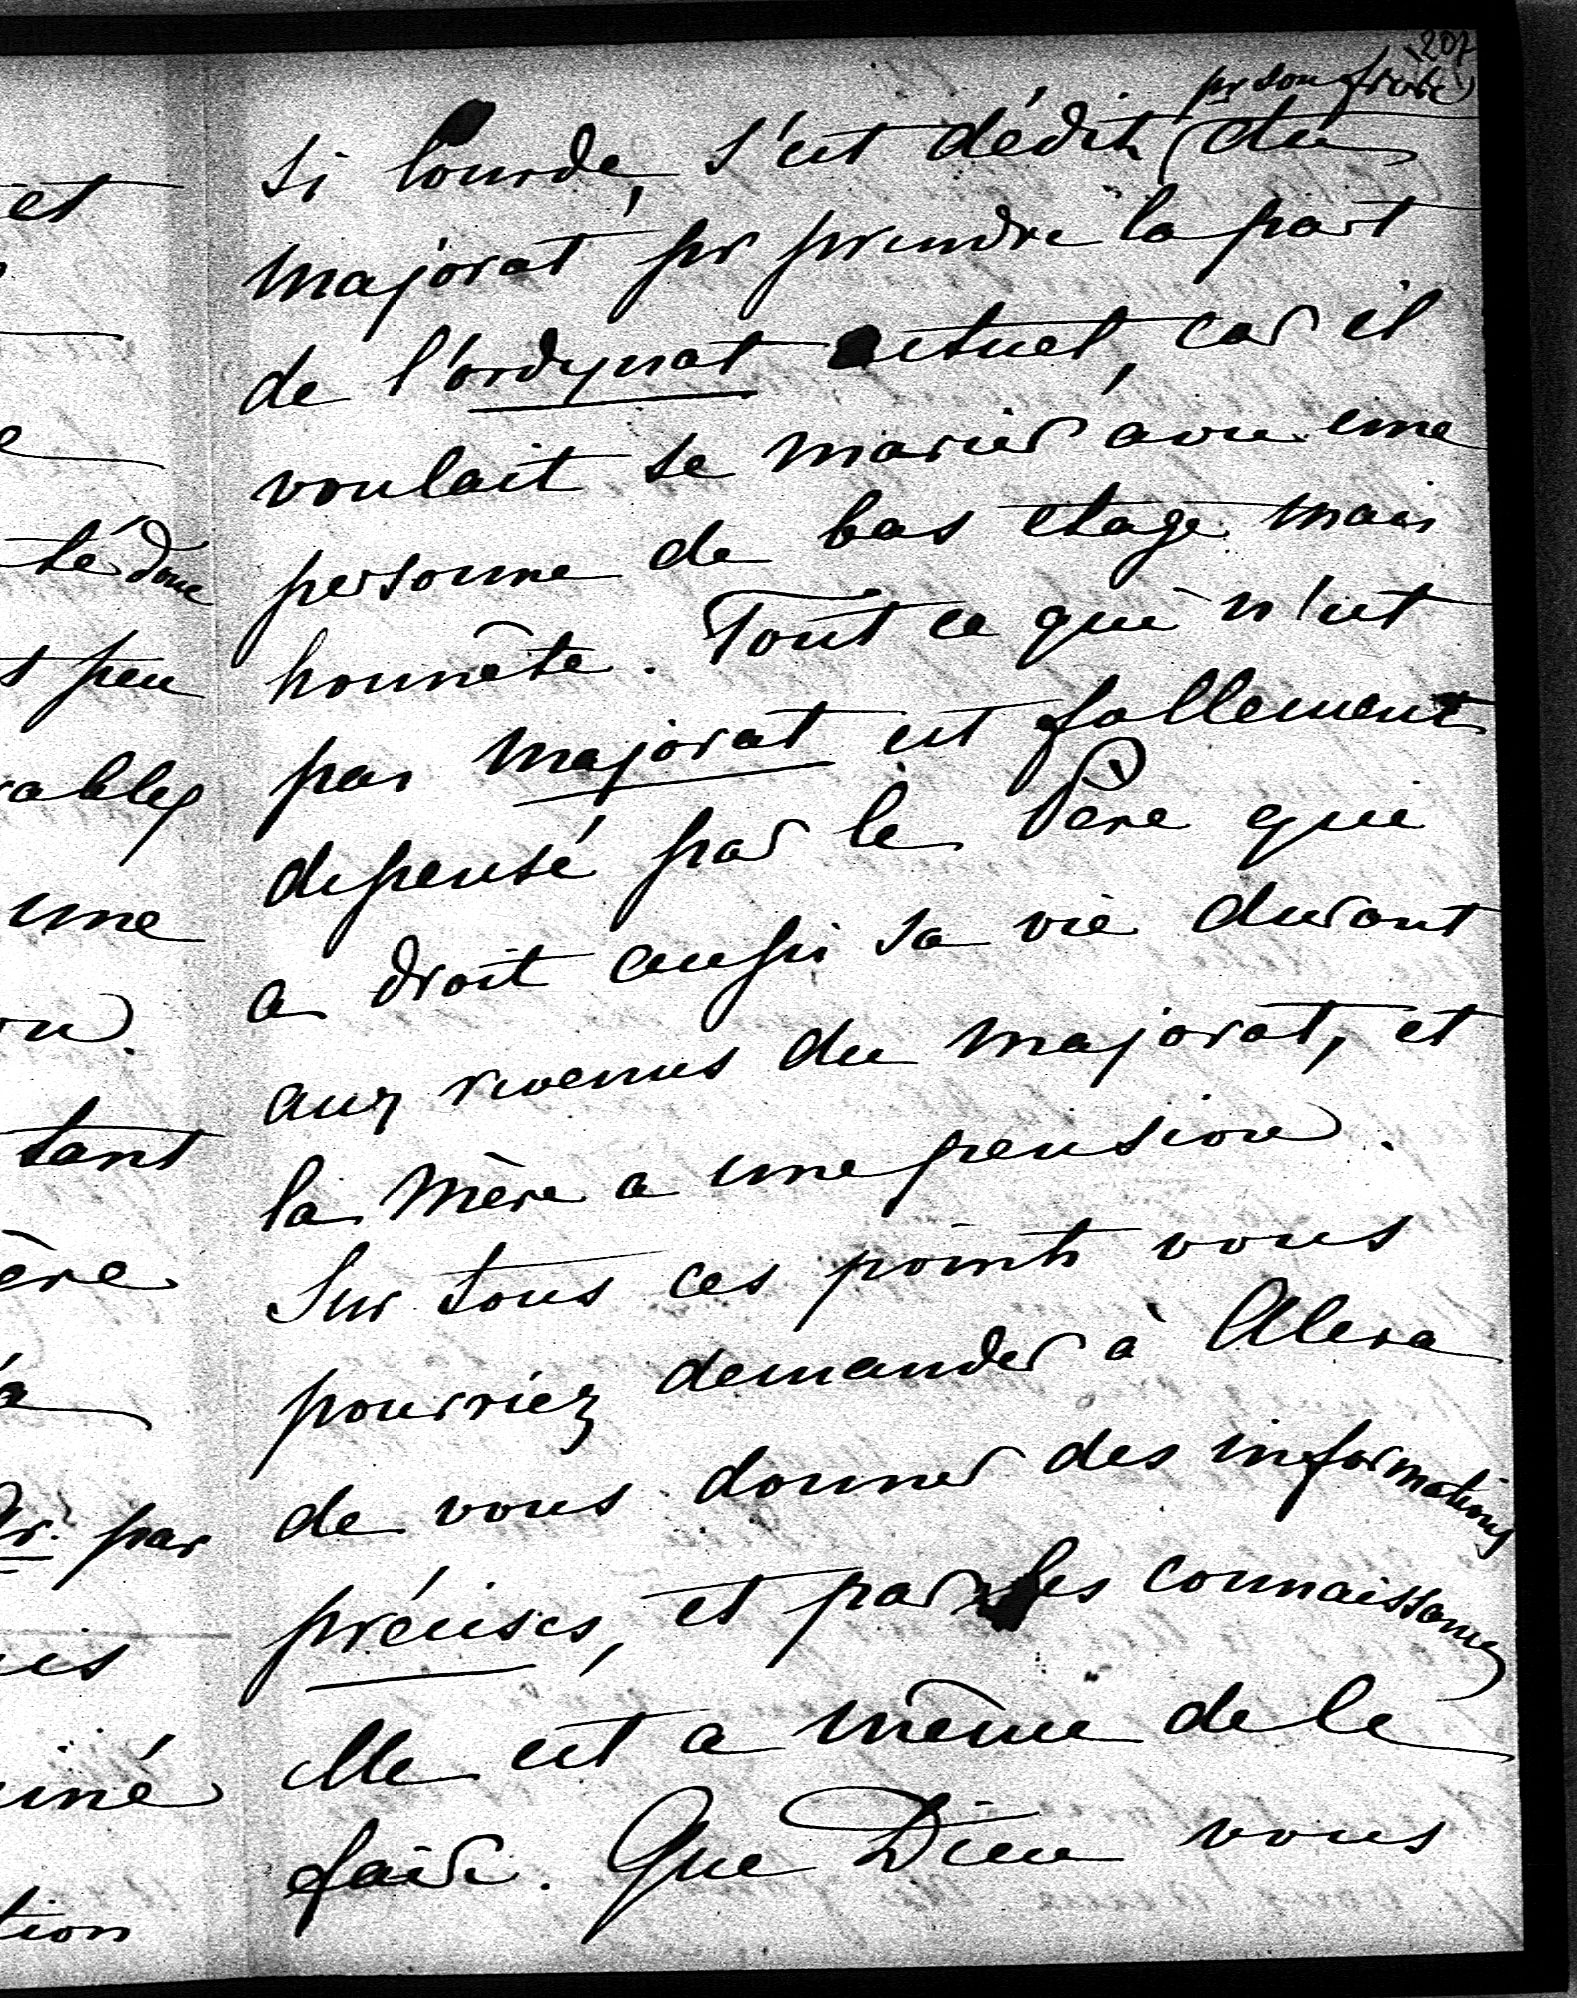 207
pr son frère)
si lourde, s'est dédit (du
majorat pr prendre la part
de l'ordynat actuel, car il
voulait se marier avec une
personne de bas etage mais
honnête. Tout ce qui n'est
pas majorat est follement
depensé par le Père qui
a droit aussi sa vie durant
aux revenus du majorat, et
la Mère a une pension.
Sur tous ces points vous
pourriez demander à Alexa
de vous donner des informations
précises, et par ses connaissances
elle est a même de le
faire. Que Dieu vous
et
té donc
peu
rables
une
on.
tant
ère
par
uis
iné
tion